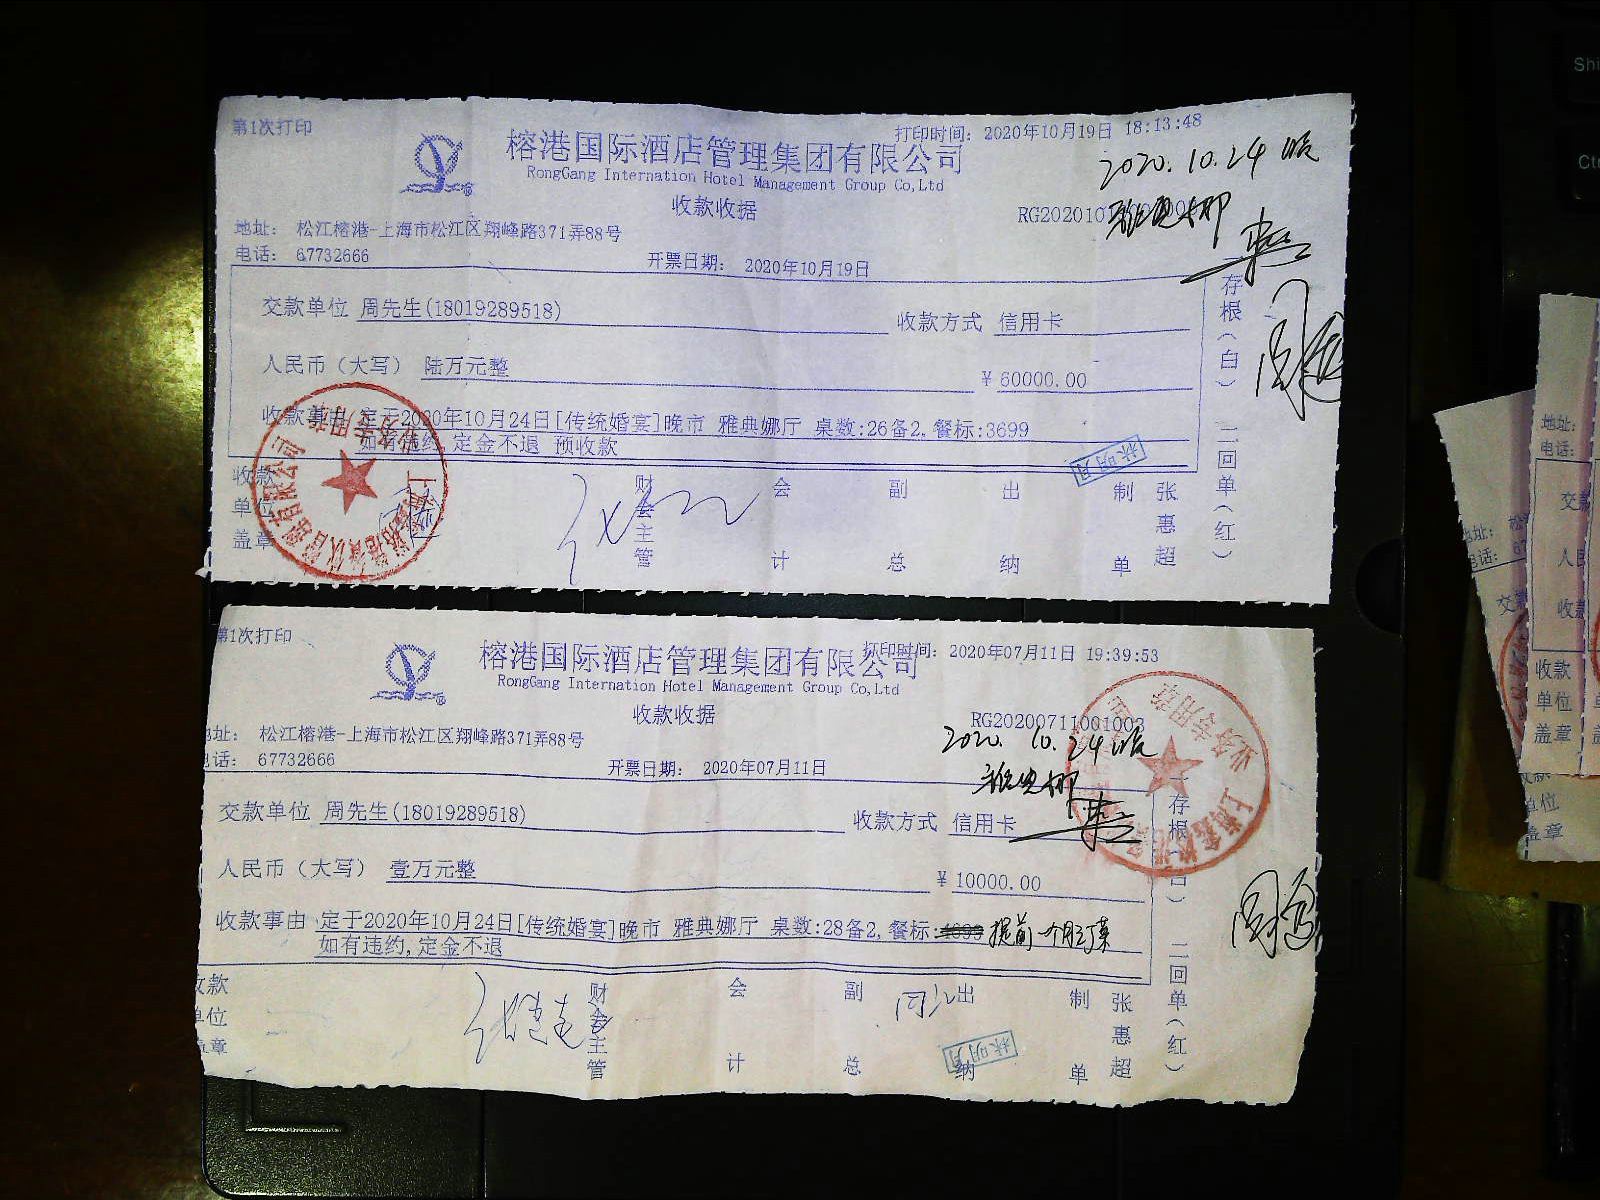 第1次打印
打印时间: 2020年10月19日 18:13:48
榕港国际酒店管理集团有限公司
RongGang International Hotel Management Group Co,Ltd
2020.10.24 晚
收款收据
RG202010
雅典娜
地址: 松江榕港-上海市松江区翔峰路371弄88号
电话: 67732666
开票日期: 2020年10月19日
交款单位 周先生(18019289518)
收款方式 信用卡
人民币（大写） 陆万元整
¥ 60000.00
收款事由 定于2020年10月24日[传统婚宴]晚市 雅典娜厅 桌数:26备2,餐标:3699
如有违约,定金不退 预收款
林明月
收款单位盖章
财会主管
会计
副总
出纳
制单
张惠超
存根（白） 二回单（红）
第1次打印
打印时间: 2020年07月11日 19:39:53
榕港国际酒店管理集团有限公司
RongGang International Hotel Management Group Co,Ltd
收款收据
RG20200711001003
2020. 10. 24 晚
雅典娜
地址: 松江榕港-上海市松江区翔峰路371弄88号
电话: 67732666
开票日期: 2020年07月11日
业务专用章
交款单位 周先生(18019289518)
收款方式 信用卡
人民币（大写） 壹万元整
¥ 10000.00
收款事由 定于2020年10月24日[传统婚宴]晚市 雅典娜厅 桌数:28备2,餐标:4699 提前一个月订菜
如有违约,定金不退
收款单位盖章
财会主管
会计
副总
出纳
制单
张惠超
林明月
存根（白） 二回单（红）
地址:
电话:
收款
单位
盖章